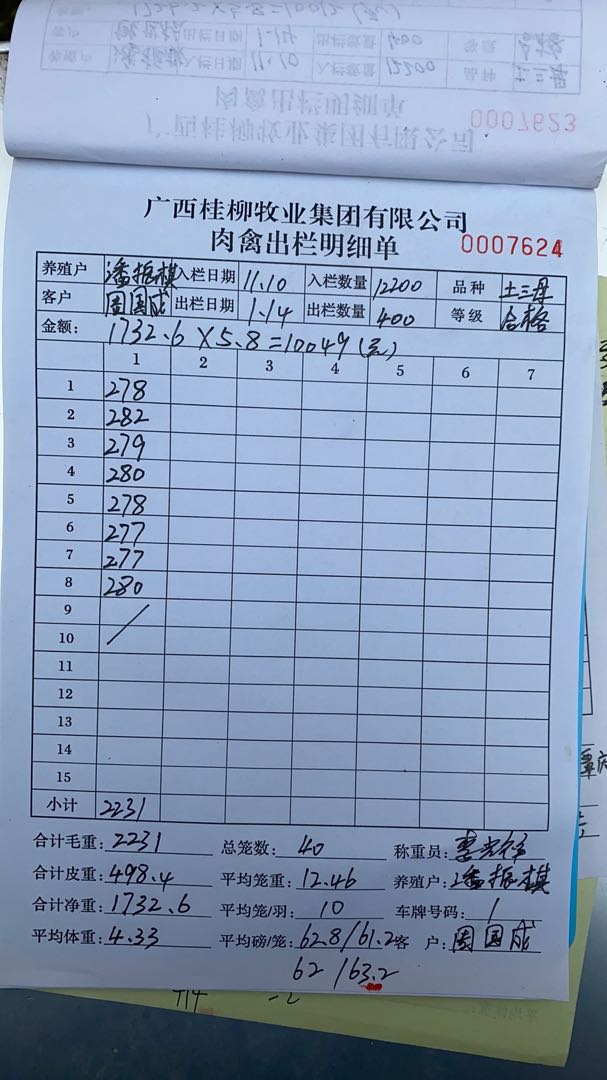 0007623
广西桂柳牧业集团有限公司
肉禽出栏明细单 0007624
养殖户 潘振棋 入栏日期 11.10 入栏数量 12200 品种 土三丹
客户 周国成 出栏日期 1.14 出栏数量 400 等级 合格
金额: 1732.6×5.8=10049(元)
1 2 3 4 5 6 7
1 278
2 282
3 279
4 280
5 278
6 277
7 277
8 280
9
10
11
12
13
14
15
小计 2231
合计毛重: 2231 总笼数: 40 称重员:
合计皮重: 498.4 平均笼重: 12.46 养殖户: 潘振棋
合计净重: 1732.6 平均笼/羽: 10 车牌号码: /
平均体重: 4.33 平均磅/笼: 62.8/61.2 客 户: 周国成
62/63.2